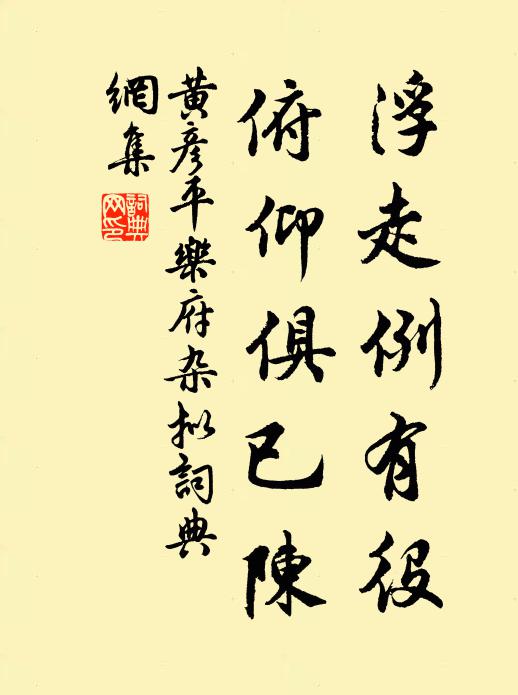 浮走例有役
俯仰俱已陳
黃彥平樂府杂拟詞典
網集
詞典
网印